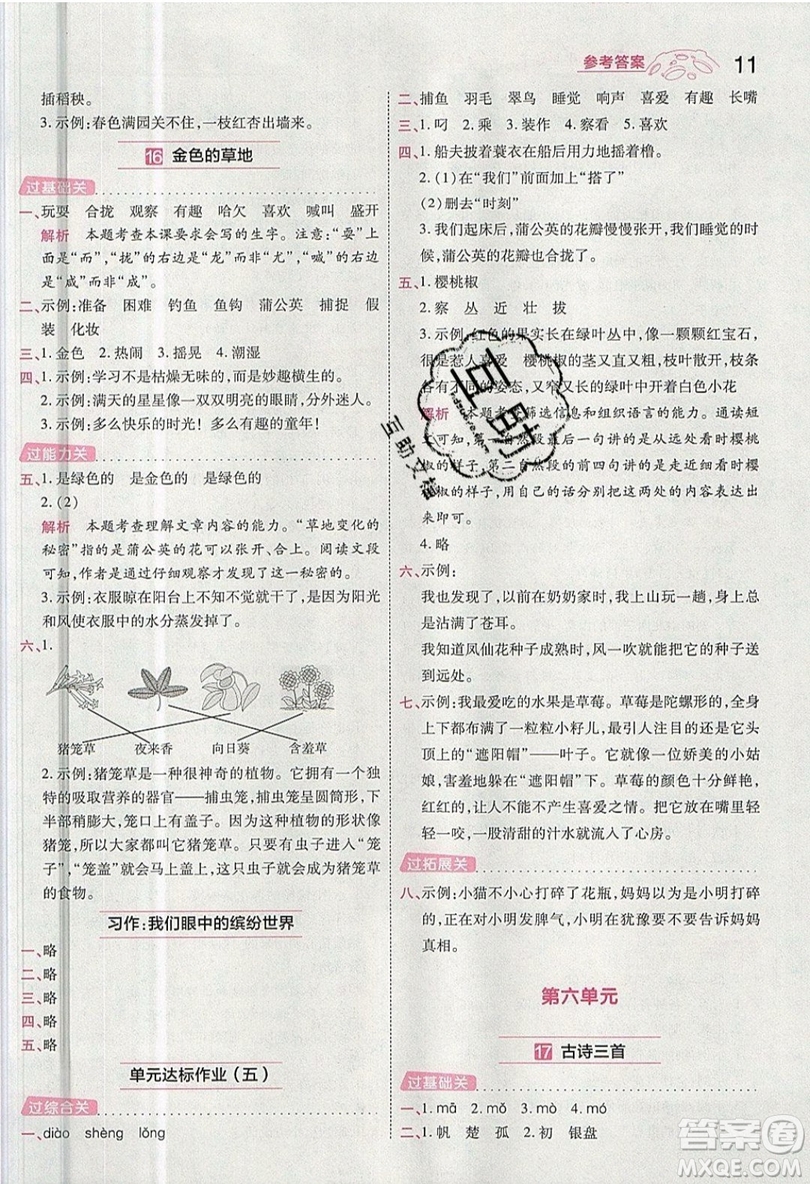 参考答案 11
插稻秧。
3. 示例:春色满园关不住,一枝红杏出墙来。
16 金色的草地
过基础关
一、玩耍 合拢 观察 有趣 哈欠 喜欢 喊叫 盛开
解析 本题考查本课要求会写的生字。注意:“耍”上
面是“而”,“拢”的右边是“龙”而不是“尤”,“喊”的右边
是“咸”而不是“成”。
二、示例:准备 困难 钓鱼 鱼钩 蒲公英 捕捉 假
装 化妆
三、1. 金色 2. 热闹 3. 摇晃 4. 潮湿
四、1. 示例:学习不是枯燥无味的,而是妙趣横生的。
2. 示例:满天的星星像一双双明亮的眼睛,分外迷人。
3. 示例:多么快乐的时光!多么有趣的童年!
过能力关
五、1. 是绿色的 是金色的 是绿色的
2. (2)
解析 本题考查理解文章内容的能力。“草地变化的
秘密”指的是蒲公英的花可以张开、合上。阅读文段
可知,作者是通过仔细观察才发现了草地的秘密。
3. 示例:衣服晾在阳台上不知不觉就干了,因为阳光
和风使衣服中的水分蒸发掉了。
六、1.
猪笼草 夜来香 向日葵 含羞草
2. 示例:猪笼草是一种很神奇的植物。它拥有一个独
特的吸取营养的器官——捕虫笼,捕虫笼呈圆筒形,下
半部稍膨大,笼口上有盖子。因为这种植物的形状像
猪笼,所以大家都叫它猪笼草。猪笼草能够捕食虫
子呢。它只要有虫子飞进像瓶子一样的“笼子”
里,“笼盖”就会马上合上。这只虫子就会成为猪笼草
的食物。
习作:我们眼中的缤纷世界
一、略
二、略
三、略
四、略
五、略
单元达标作业(五)
过综合关
一、diào shèng lǒng
二、捕鱼 羽毛 翠鸟 睡觉 响声 喜爱 有趣 长嘴
三、1. 叼 2. 乘 3. 装作 4. 察看 5. 喜欢
四、1. 船夫披着蓑衣在船后用力地摇着橹。
2. (1)在“我们”前面加上“搭了”
(2)删去“时刻”
3. 我们起床后,蒲公英的花瓣慢慢张开,我们睡觉的时
候,蒲公英的花瓣也合拢了。
五、1. 樱桃椒
2. 察 丛 近 壮 拔
3. 示例:红色的果实长在绿叶丛中,就像一颗颗红宝石,
很是惹人喜爱 樱桃椒的茎又直又粗,枝叶散开,枝条
有着不同的姿态,又窄又长的绿叶中开着白色小花
解析 本题考查筛选信息和组织语言的能力。通读短
文可知,第一自然段的最后一句讲的是樱桃
椒的样子。第二自然段的前面一句讲的是樱
桃椒的样子,用自己的话分别把这两处内容提炼出
来即可。
4. 略
六、示例:
我也发现了,以前在奶奶家的时候,我上山玩一趟,身上总
会沾满了苍耳。
我知道凤仙花种子成熟时,果实就会弹裂,把它的种子送
到远处。
七、示例:我最爱吃的水果是草莓。草莓是陀螺形的,上
面长满了一粒粒小籽儿,就像小芝麻似的,它
头上的“遮阳帽”——叶子。它就像一位娇美的小姑
娘,老是戴着“遮阳帽”在田里。草莓的颜色十分鲜艳,
红红的,让人不能不产生喜爱之情。把它放在嘴里轻
轻一咬,一股清甜的汁水就会流入心房。
过拓展关
八、示例:小猫不小心打碎了花瓶,妈妈以为是小明打碎
的,在对小明发脾气,小明在犹豫要不要告诉妈妈
真相。
第六单元
17 古诗三首
过基础关
一、1. mā 2. mò 3. mó 4. mó
二、1. 帆 楚 孤 2. 初 银盘
互助
互助文档
答案圈
MXQE.COM